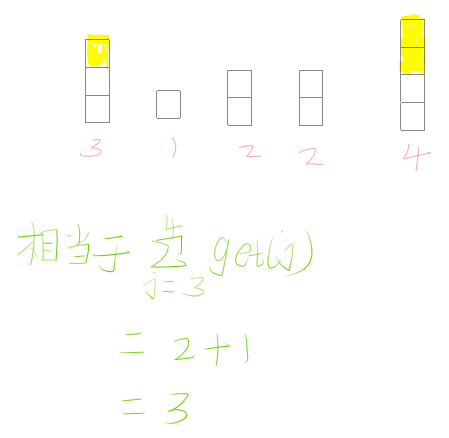 3 1 2 2 4
相当于 ∑_{j=3}^{4} get(j)
= 2+1
= 3